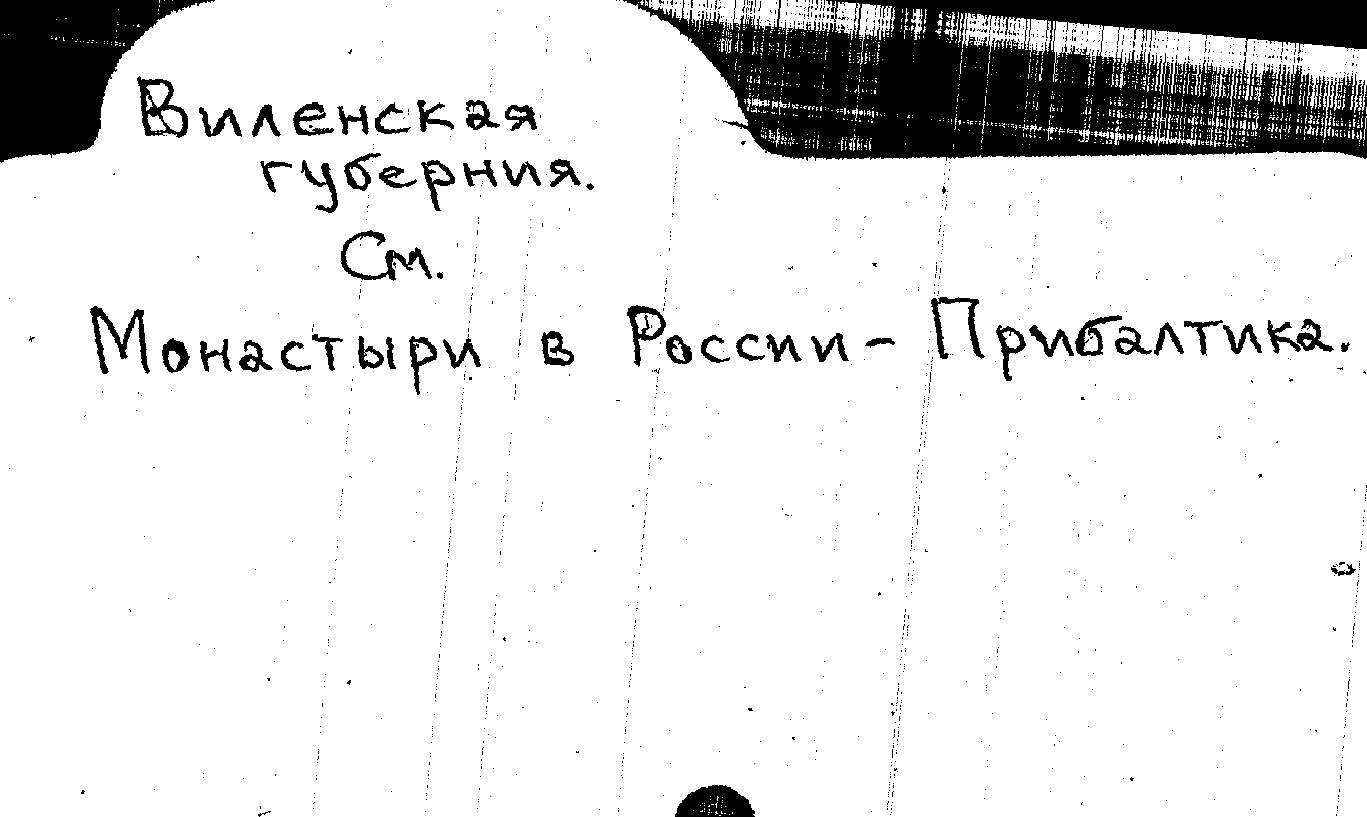 Виленская
губерния.
См.
Монастыри в России - Прибалтика.